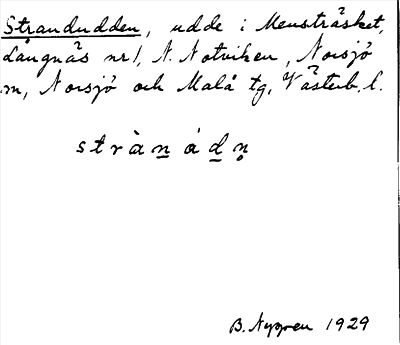 Strandudden, udde i Mensträsket,
Långnäs nr 1, N. Notviken, Norsjö
sn, Norsjö och Malå tg, Västerb. l.
strànádn̥
B. Nygren 1929